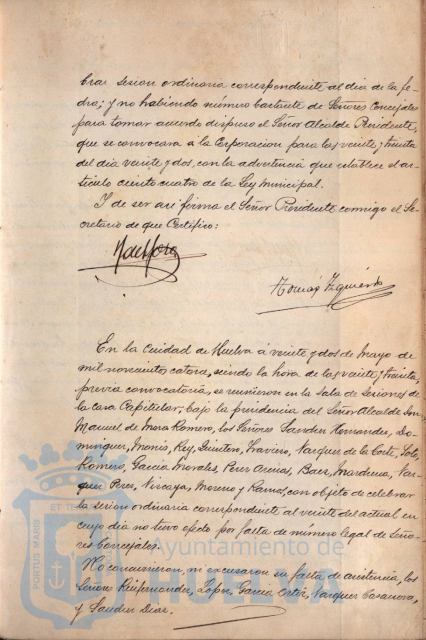 brar sesion ordinaria correspondiente al dia de la fe-
cha; y no habiendo número bastante de Señores Concejales
para tomar acuerdo dispuso el Señor Alcalde Presidente,
que se convocara á la Corporacion para las veinte y treinta
del dia veinte y dos, con la advertencia que establece el ar-
tículo ciento cuatro de la Ley Municipal.
Y de ser asi firma el Señor Presidente conmigo el Se-
cretario de que Certifico:
M de Mora
Tomás Izquierdo
En la Ciudad de Huelva á veinte y dos de Mayo de
mil novecientos catorce, siendo la hora de las veinte y treinta,
previa convocatoria, se reunieron en la Sala de Sesiones de
la Casa Capitular, bajo la presidencia del Señor Alcalde Don
Manuel de Mora Romero, los Señores Sanchez Hernandez, Do-
minguez, Monis, Rey, Quintero, Traviero, Vazquez de la Corte, Solé,
Romero, Garcia Morales, Perez Armas, Baez, Mardena, Vaz-
quez Perez, Vizcaya, Moreno y Ramos, con objeto de celebrar
la sesion ordinaria correspondiente al veinte del actual en
cuyo dia no tuvo efecto por falta de número legal de Seño-
res Concejales.
No concurrieron, ni excusaron su falta de asistencia, los
Señores López, Garcia Ortiz, Vazquez Casanova,
y Sanchez Diaz.
Ayuntamiento de
HUELVA
PORTUS MARIS
ET TE